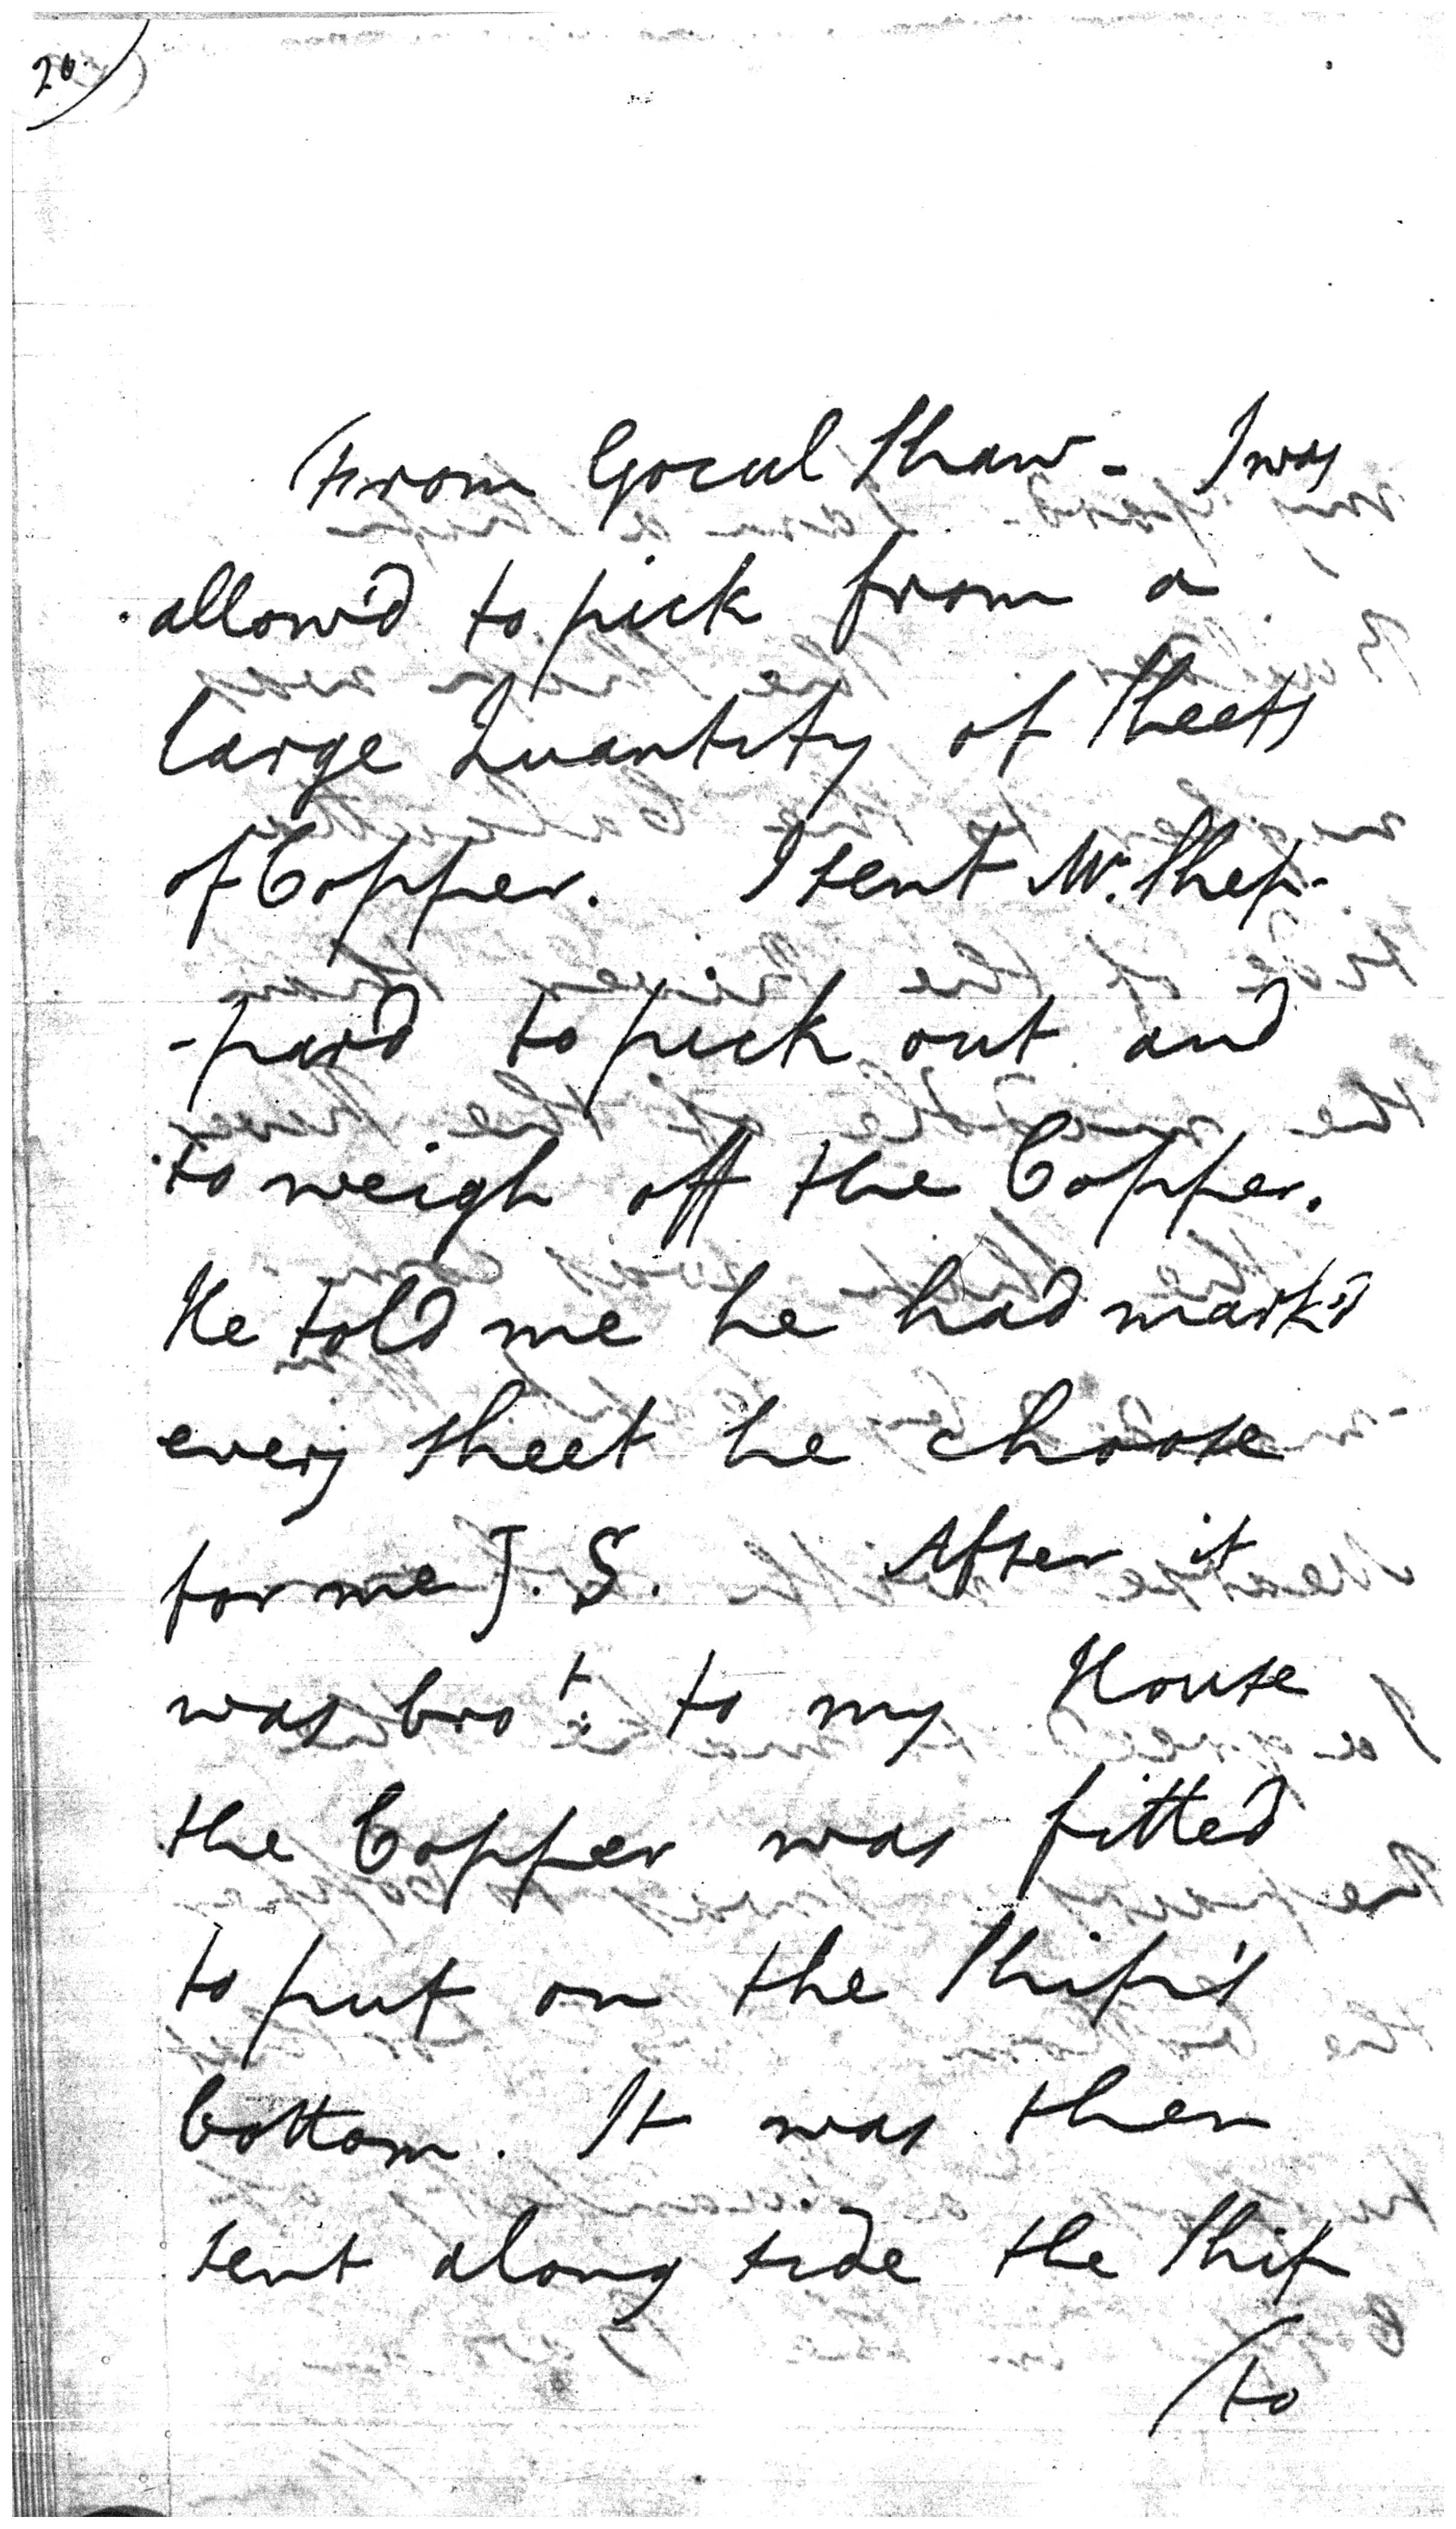 20.
From Gocul Shaw - I was
allow'd to pick from a
large Quantity of Sheets
of Copper. I sent Mr. Shep-
-pard to pick out and
to weigh off the Copper.
He told me he had mark'd
every sheet he choose
for me J. S. After it
was bro:t to my House
the Copper was fitted
to put on the Ship's
bottom. It was then
sent along side the Ship
to